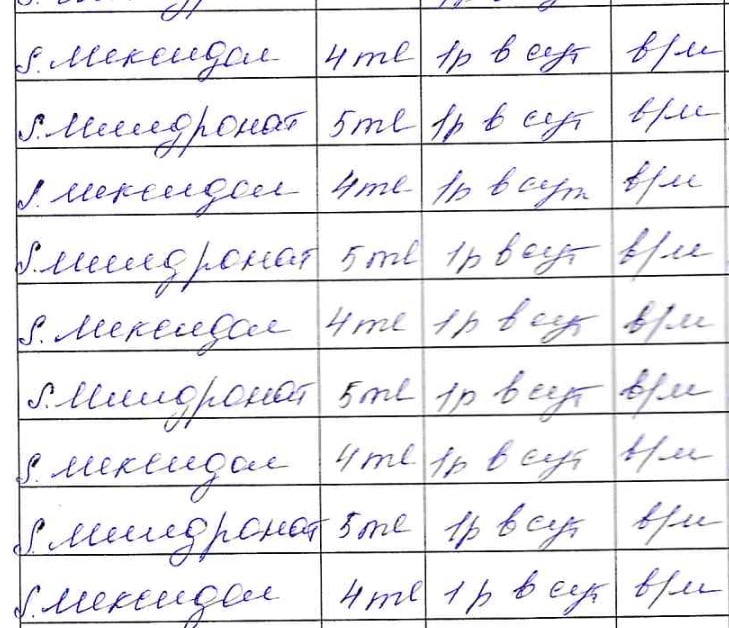 S. Мексидол 4 ml 1р в сут в/м
S. Милдронат 5 ml 1р в сут в/м
S. Мексидол 4 ml 1р в сут в/м
S. Милдронат 5 ml 1р в сут в/м
S. Мексидол 4 ml 1р в сут в/м
S. Милдронат 5 ml 1р в сут в/м
S. Мексидол 4 ml 1р в сут в/м
S. Милдронат 5 ml 1р в сут в/м
S. Мексидол 4 ml 1р в сут в/м